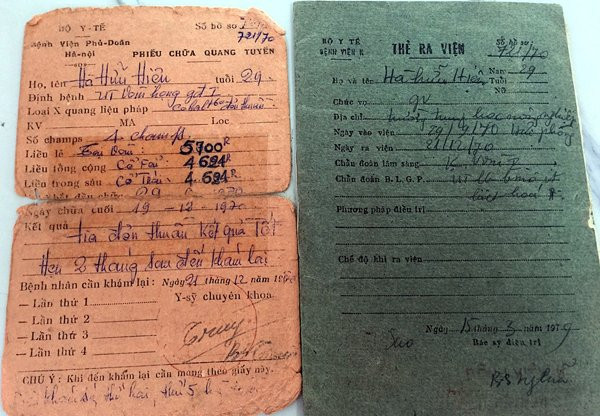 BỘ Y-TẾ
Số hồ sơ
721/70
Bệnh Viện Phủ-Doãn
Hà-nội
PHIẾU CHỮA QUANG TUYẾN
Họ, tên Hà Hữu Hiền tuổi 29
Định bệnh UT vòm họng gđ I
Loại X quang liệu pháp Cobalt 60 đơn thuần
KV MA Loc
Số champs 4 champs
Liền lẻ 5700R
Liền tổng cộng Cổ Fải 4694R
Liền trong sâu Cổ Trái 4.694R
Ngày chữa cuối 19-12-1970
Kết quả
tia đơn thuần kết quả TỐT
Hẹn 2 tháng sau đến khám lại
Bệnh nhân cần khám lại: Ngày 21 tháng 12 năm
— Lần thứ 1
Y-sỹ chuyên khoa
— Lần thứ 2
— Lần thứ 3
— Lần thứ 4
CHÚ Ý: Khi đến khám lại cần mong theo giấy này.
BỘ Y TẾ
BỆNH VIỆN K
THẺ RA VIỆN
Số hồ sơ:
721/70
Họ và tên Hà hữu Hiền Nam 29
Nữ
Chức vụ gv
Địa chỉ trường trung học nông nghiệp
Ngày vào viện 29/9/70 Hải phòng
Ngày ra viện 21/12/70
Chẩn đoán lâm sàng K vòm I
Chẩn đoán B.L.G.P.
Phương pháp điều trị
Chế độ khi ra viện
Ngày 15 tháng 5 năm 1979
Sao
Bác sỹ điều trị
BS Nghĩa